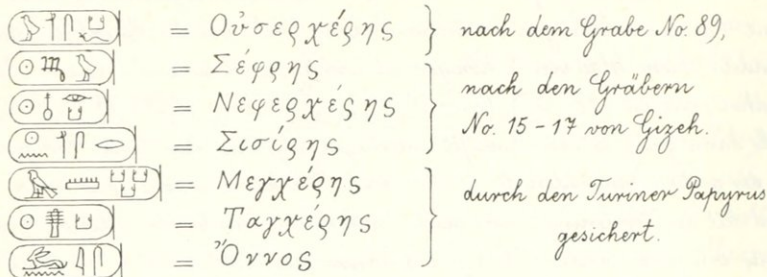 = Οὐσερχέρης } nach dem Grabe No. 89,
= Σέφρης
= Νεφερχέρης
= Σισίρης
} nach den Gräbern
No. 15 – 17 von Gizeh.
= Μεγχέρης
= Ταγχέρης
= Ὄννος
} durch den Turiner Papyrus
gesichert.